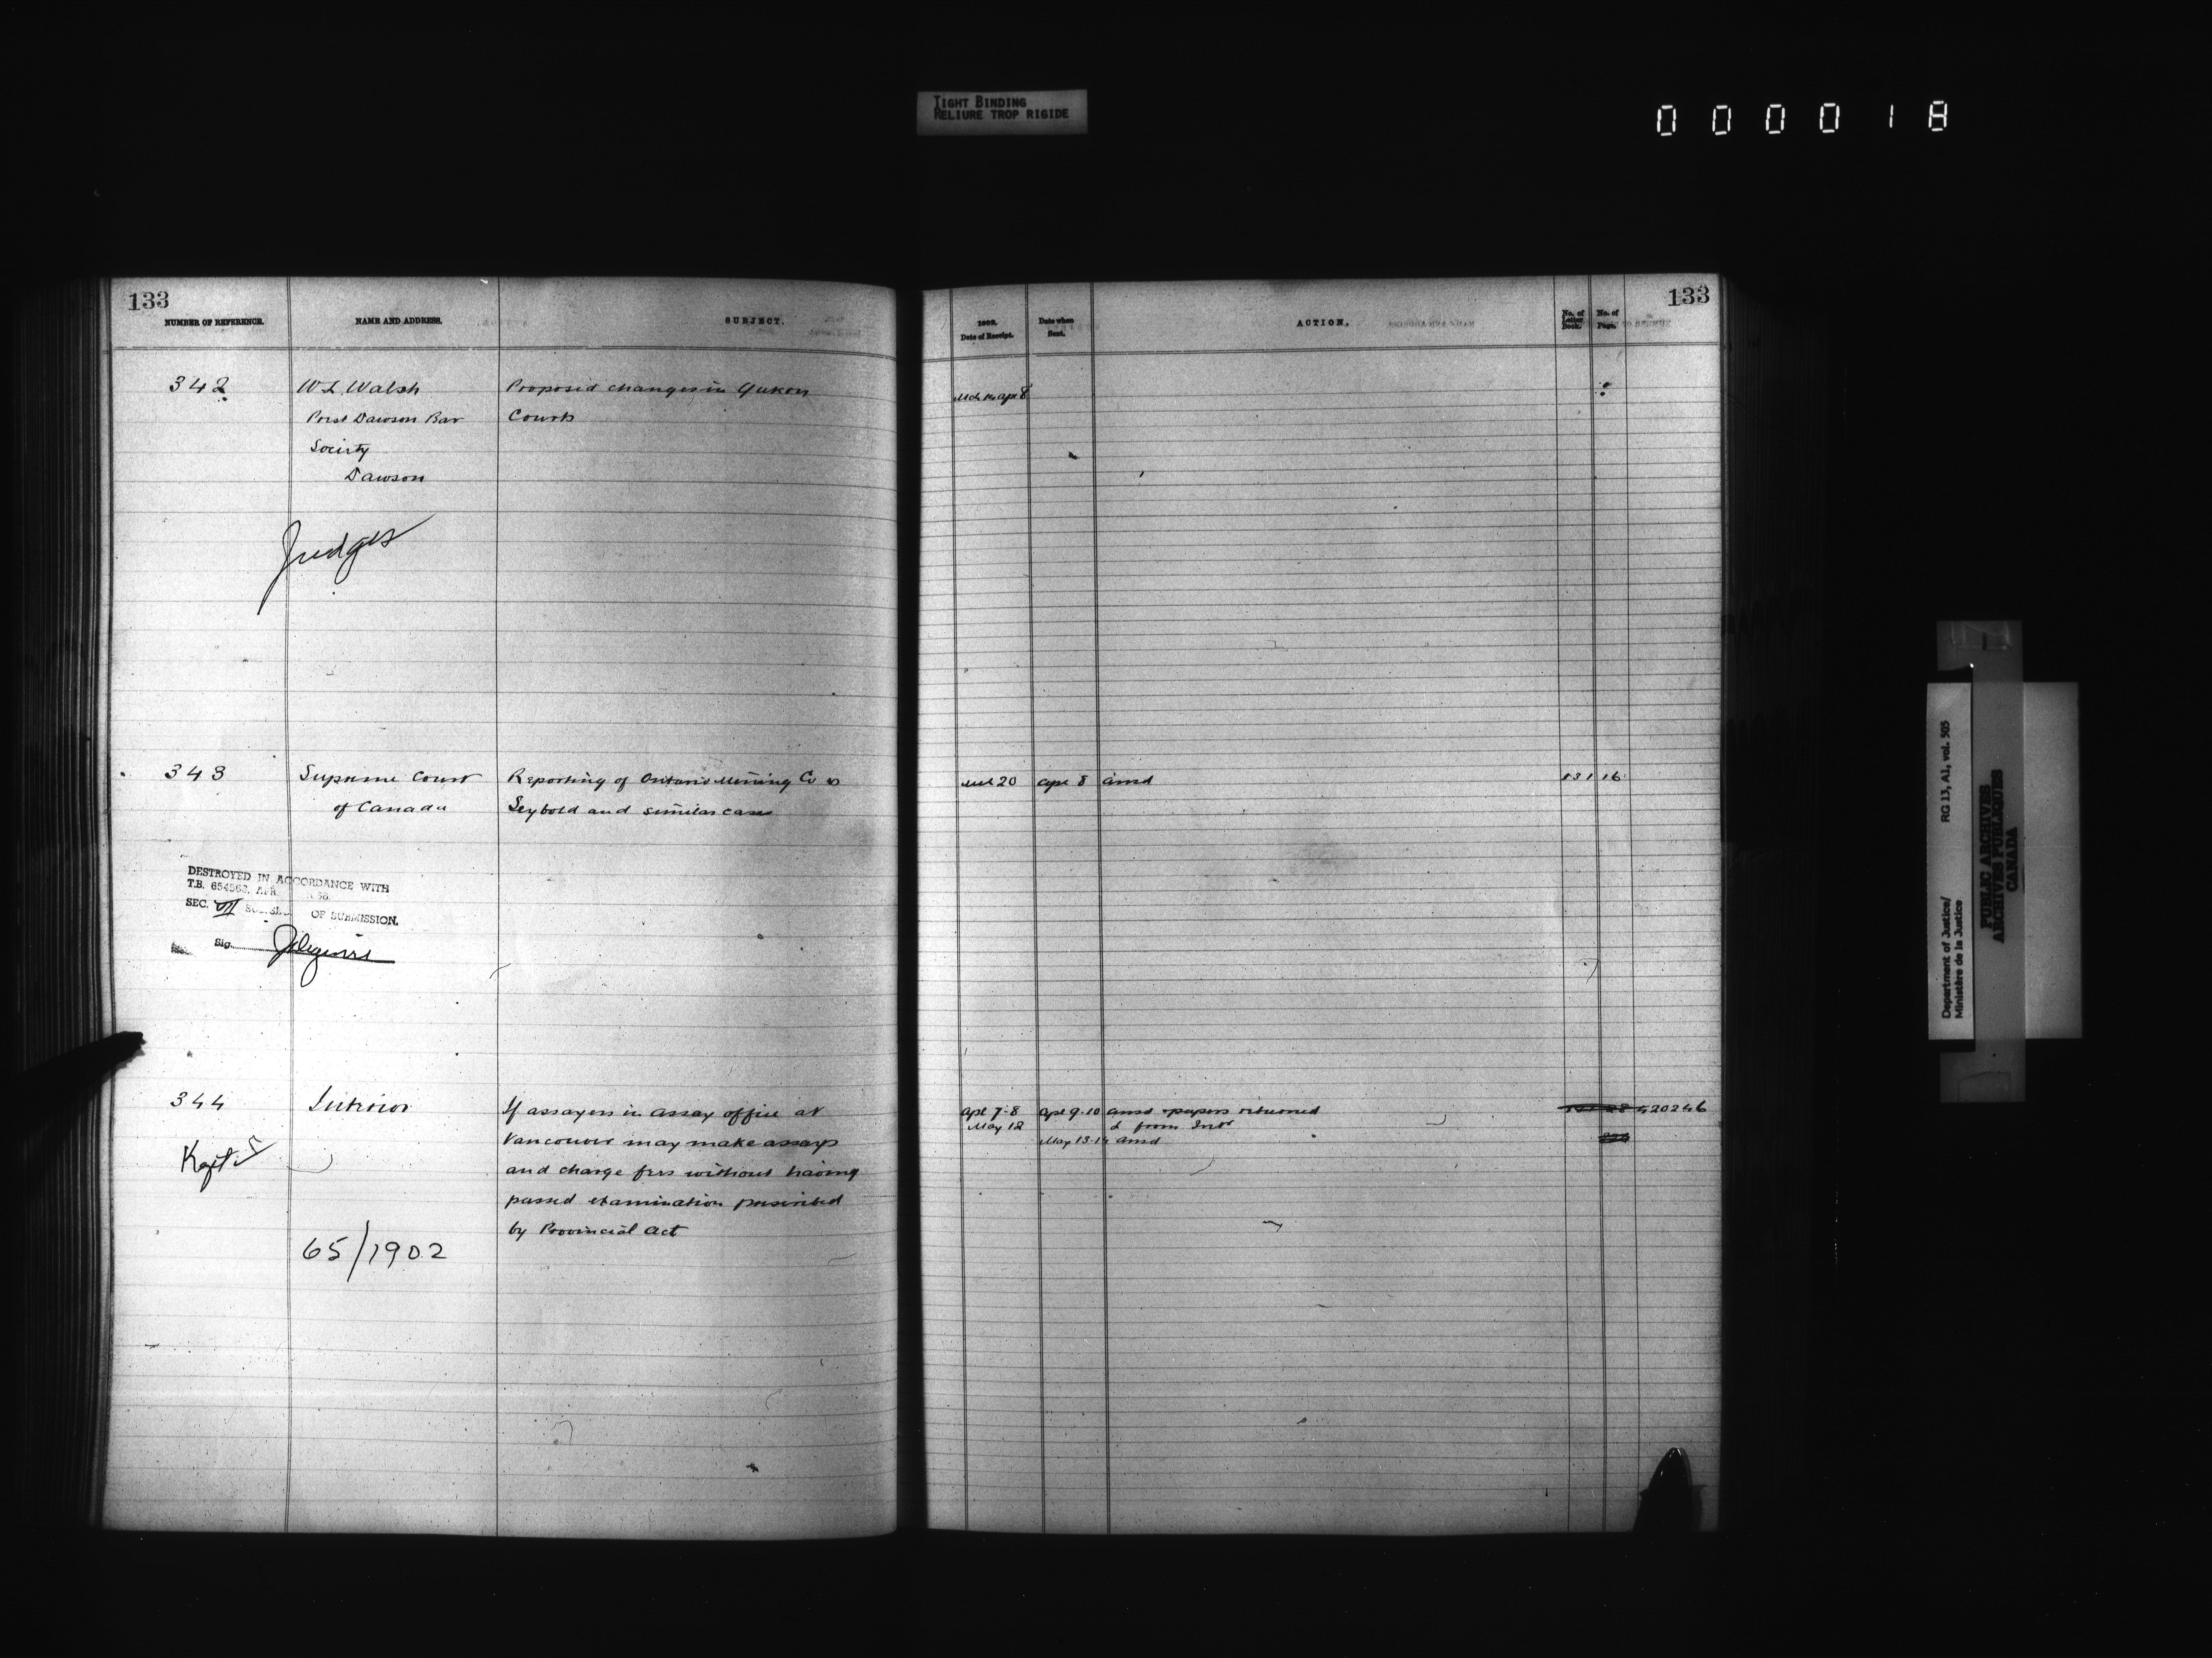 TIGHT BINDING
RELIURE TROP RIGIDE
000018
133
NUMBER OF REFERENCE.
NAME AND ADDRESS.
SUBJECT.
342
W L Walsh
Prest Dawson Bar
Society
Dawson
Proposed changes in Yukon
Courts
Judges
343
Supreme Court
of Canada
Reporting of Ontario Mining Co vs
Seybold and similar case
DESTROYED IN ACCORDANCE WITH
T.B. 654563, APR.
SEC. VII OF SUBMISSION.
Sig.
344
Interior
If assayers in assay office at
Vancouver may make assays
and charge fees without having
passed examination prescribed
by Provincial Act
65/1902
133
1902.
Date of Receipt.
Date when
Sent.
ACTION.
No. of
Letter
Book.
No. of
Page.
Apl 8
20
Apl 8
ansd
131
16
Apl 7-8
Apl 9-10
ansd papers returned
May 12
L from Intr
May 13-14
ansd
RG 13, A1, vol. 505
Department of Justice/
Ministère de la Justice
PUBLIC ARCHIVES
ARCHIVES PUBLIQUES
CANADA